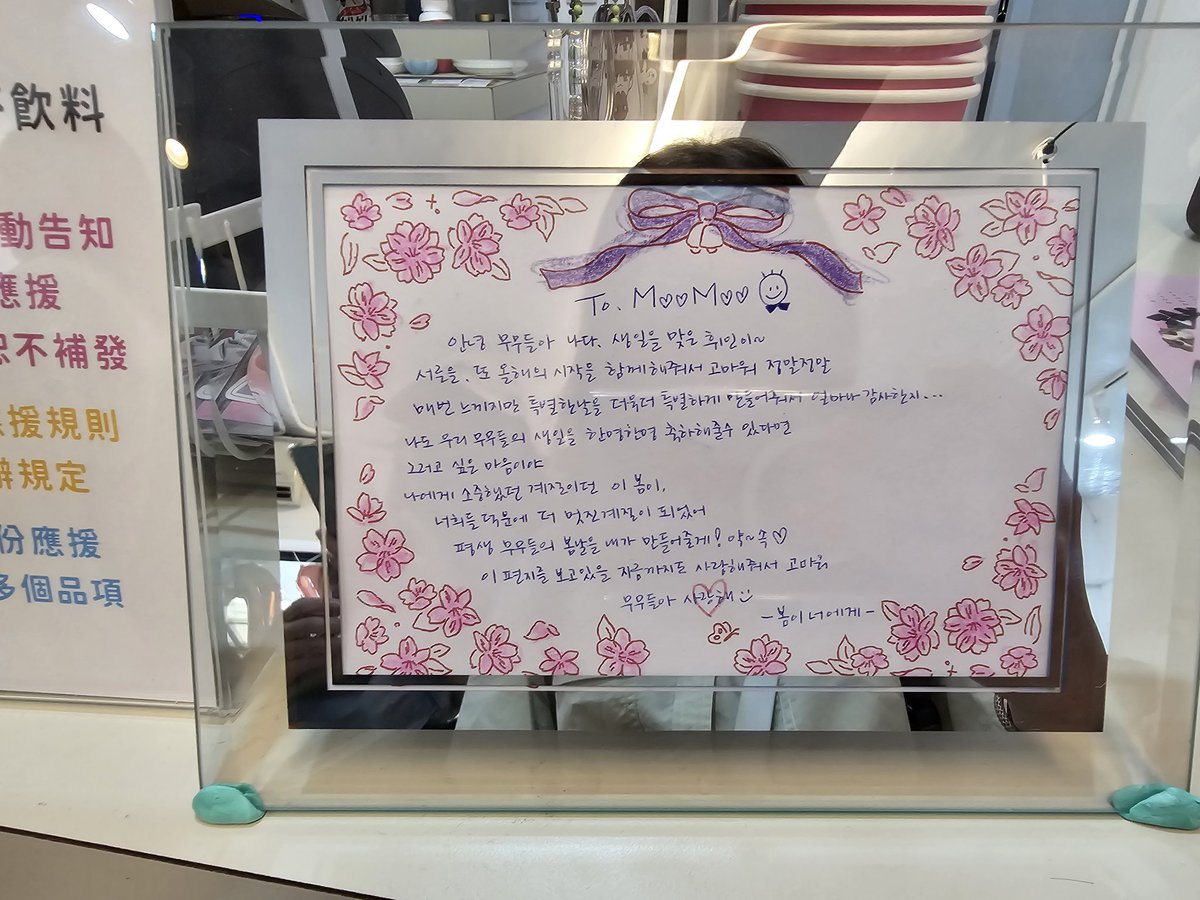 飲料
動告知
應援
不補發
援規則
規定
份應援
多個品項
To. M♡♡M♡♡
안녕 무무들아 나다. 생일을 맞은 휘인이~
서른을, 또 올해의 시작을 함께해줘서 고마워 정말정말
매번 느끼지만 특별한날들 더욱더 특별하게 만들어줘서 얼마나 감사한지...
나도 우리 무무들의 생일을 한명한명 축하해줄수 있다면
그러고 싶은 마음이야
나에게 소중했던 계절이던 이 봄이,
너희들 덕분에 더 멋진계절이 되었어
평생 무무들의 봄날을 내가 만들어줄게! 약~속♡
이 편지를 보고있을 지금까지도 사랑해줘서 고마워
무무들아 사랑해
-봄이 너에게-